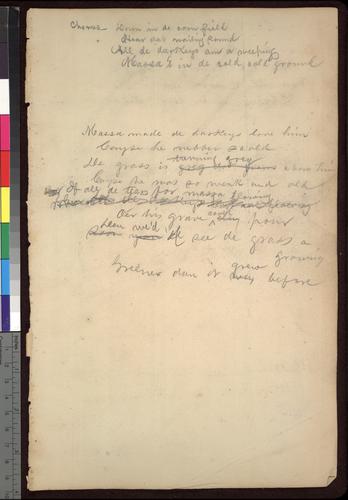 Chorus Down in de corn field
Hear dat mournful sound
All de darkeys am a weeping
Massa's in de cold, cold ground
Massa made de darkeys love him
Cayse he nebber scold
De grass is turning grey above him
Cayse he was so weak and old
If all de tears for massa flowing
Ober his grave could pour
den we'd see de grass a
growing
Greener dan it grew before